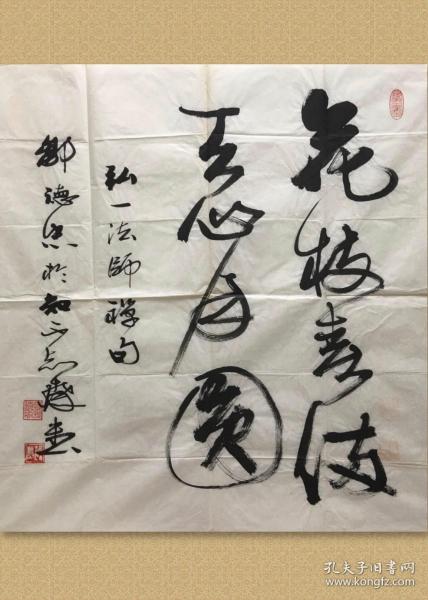 花枝春满
天心月圓
弘一法師禪句
鄒德忠於知不足齋書
孔夫子旧书网
https://www.kongfz.com/